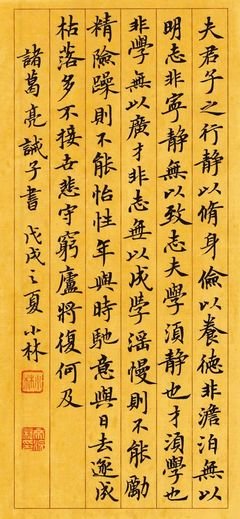 夫君子之行静以脩身儉以養德非澹泊無以
明志非寧静無以致志夫學須静也才須學也
非學無以廣才非志無以成學滛慢則不能勵
精險躁則不能怡性年與時馳意與日去遂成
枯落多不接世悲守窮廬將復何及
諸葛亮誡子書戊戌之夏小林